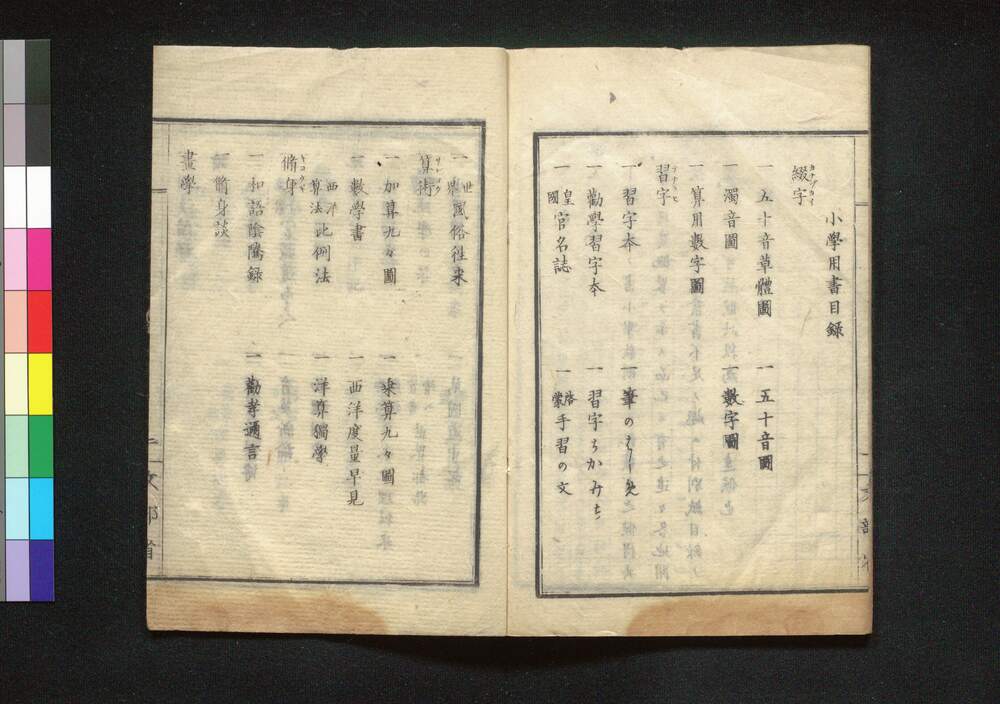 小學用書目録
綴字
一 五十音草體圖 一 五十音圖
一 濁音圖 一 數字圖
一 算用數字圖
習字
一 習字本 一 筆のはしめ
一 勸學習字本 一 習字ちかみち
一 皇國官名誌 一 啓蒙手習の文
一 世界風俗往来
算術 サンジツ
一 加算九々圖 一 乗算九々圖
一 數學書 一 西洋度量早見
一 西洋算法比例法 一 洋算獨學
脩身
一 和語陰隲録 一 勸孝邇言
一 脩身談
畫學
文部省